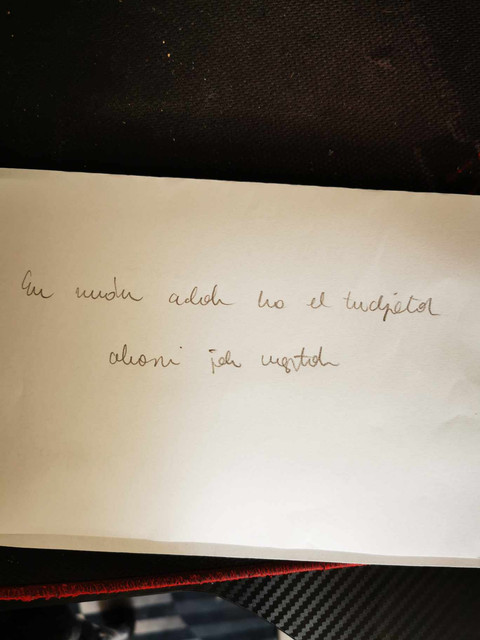 Én adok ha el tudjátok
olvasni jók vagytok